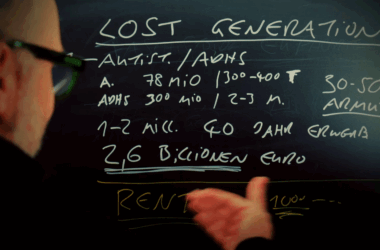 LOST GENERATION
- AUTIST. / ADHS
A. 78 MIO / 300-400 T
30-50
ADHS 300 MIO / 2-3 M.
ARMU
1-2 MILL. 40 JAHR ERWERB
2,6 BILLIONEN EURO
RENT 1000 ---